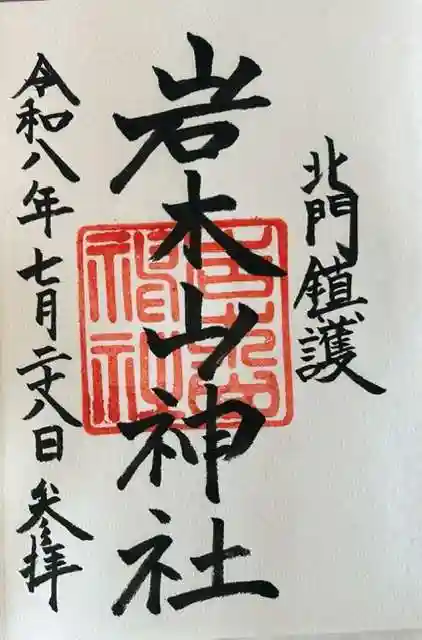 北門鎮護
岩木山神社
令和八年七月二十八日参拝